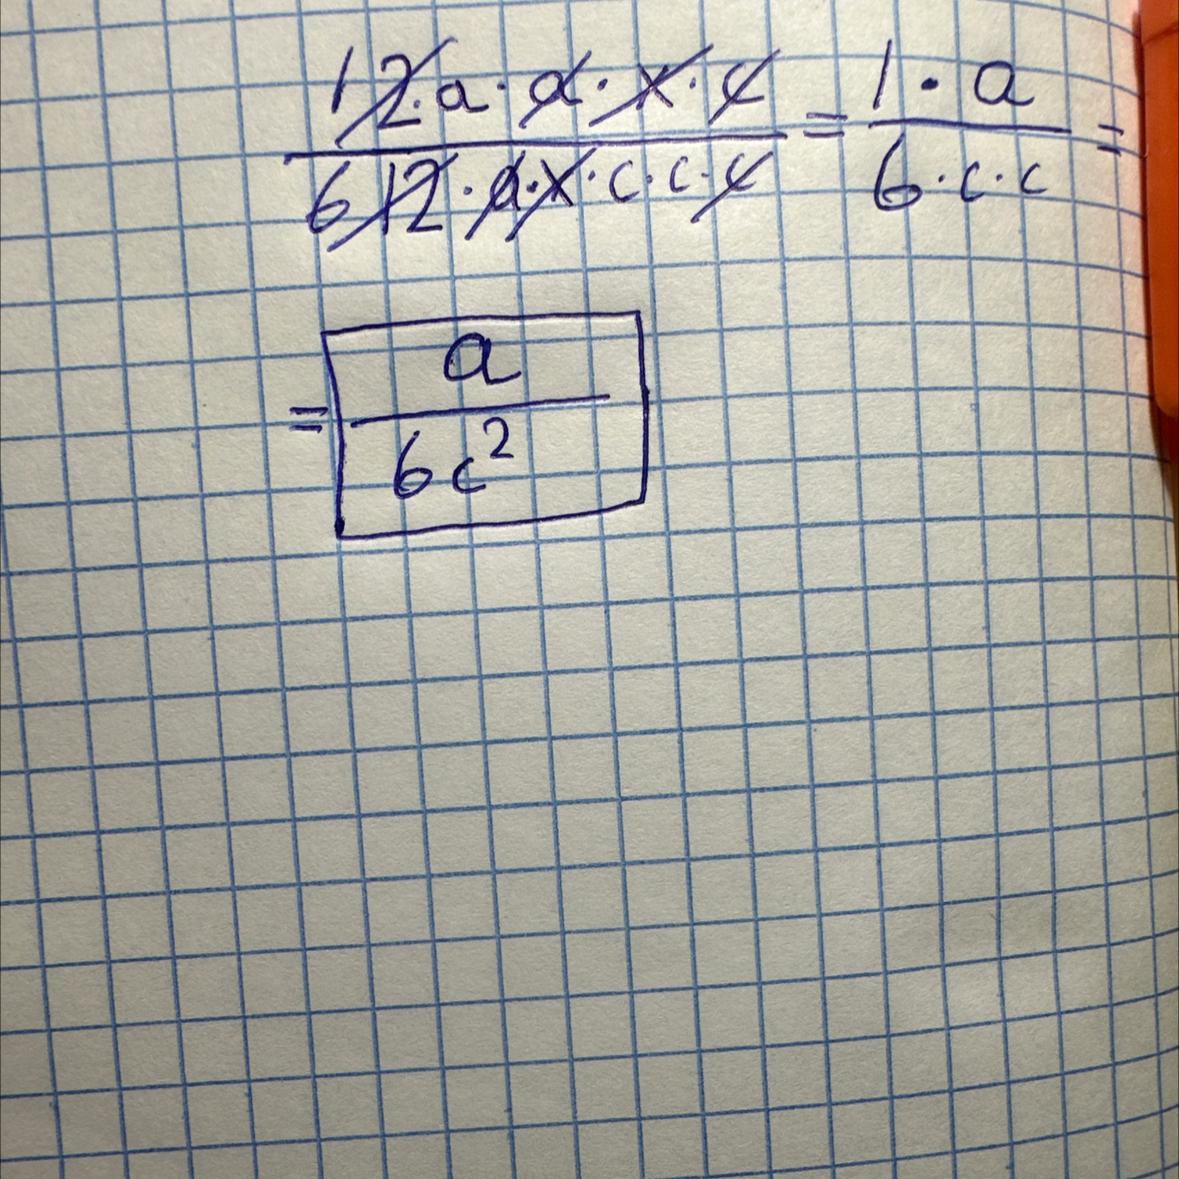 1 2 · a · a · x · c / 6 12 · a · x · c · c · c = 1 · a / 6 · c · c =
= a / 6c²